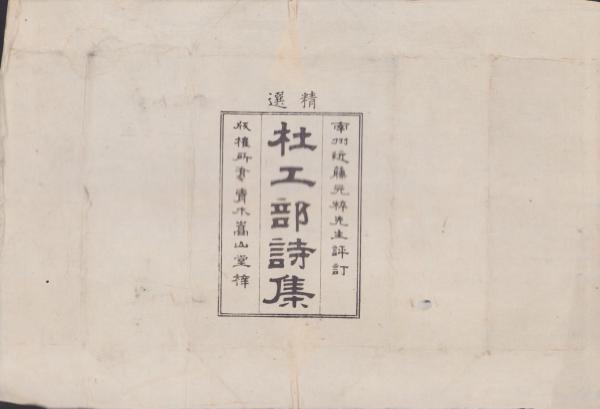 精選
南州近藤元粹先生評訂
杜工部詩集
版權所有青木嵩山堂梓